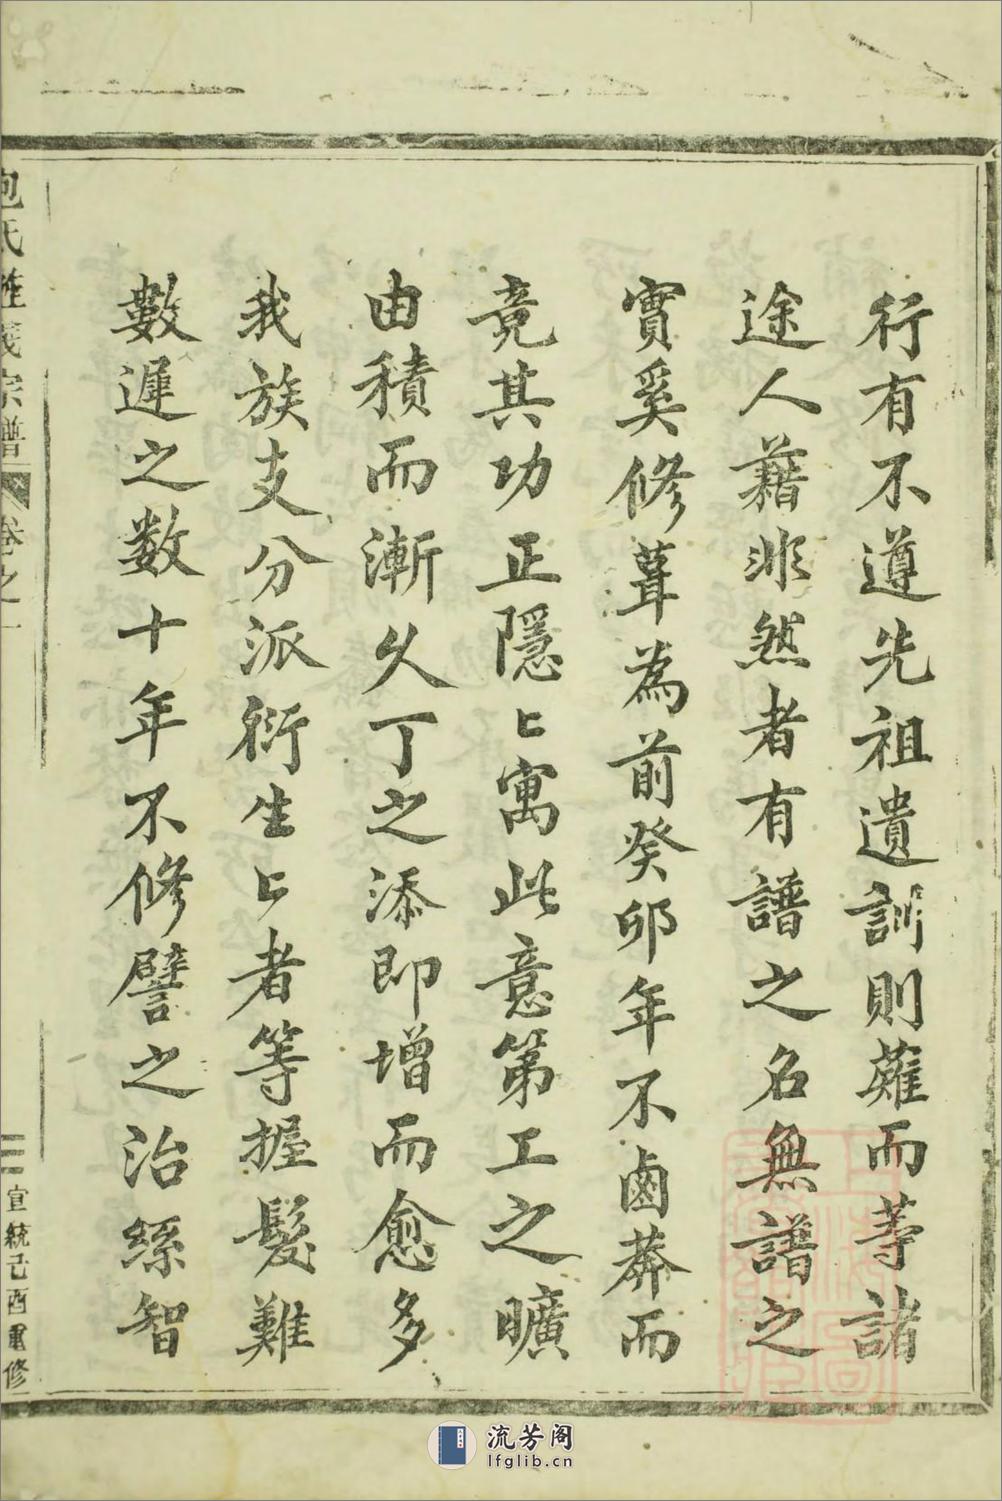 行有不遵先祖遺訓則薙而等諸
途人藉非然者有譜之名無譜之
實奚修葺為前癸卯年不鹵莽而
竟其功正隱〻寓此意第工之曠
由積而漸久丁之添即增而愈多
我族支分派衍生〻者等握髮難
數遲之数十年不修譬之治絲智
包氏旌義宗譜 卷之一
宣統己酉重修
流芳阁
lfglib.cn